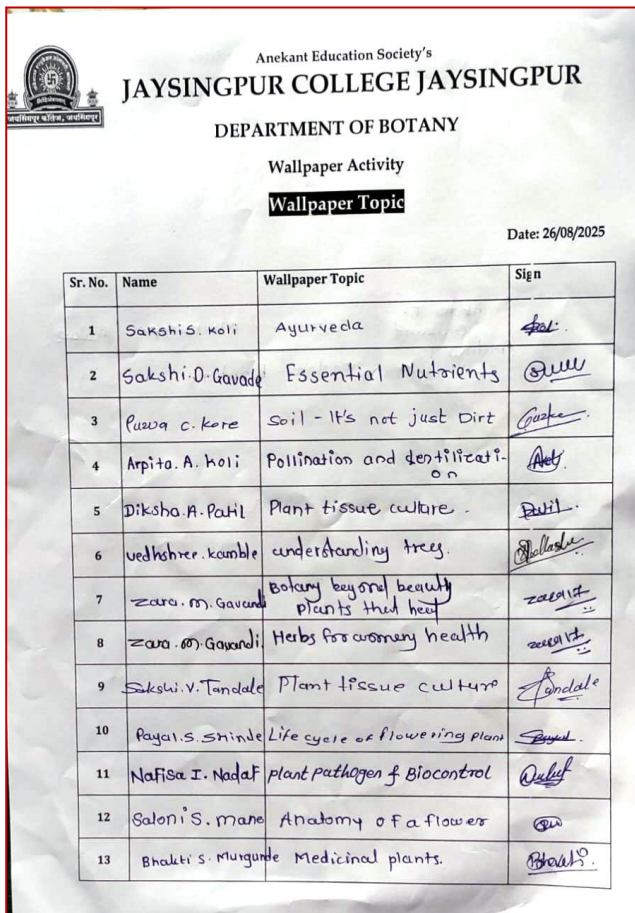 Anekant Education Society's
JAYSINGPUR COLLEGE JAYSINGPUR
जयसिंगपूर कॉलेज, जयसिंगपूर
DEPARTMENT OF BOTANY
Wallpaper Activity
Wallpaper Topic
Date: 26/08/2025
Sr. No. Name Wallpaper Topic Sign
1 Sakshi S. Koli Ayurveda
2 Sakshi.D.Gavade Essential Nutrients
3 Purva C. Kore Soil - It's not just Dirt
4 Arpita.A.Koli Pollination and
on
5 Diksha.A.Patil Plant tissue culture. Patil
6 vedhshree.kamble understanding trees.
7 Zara.M.Gavandi Botany beyond beauty
plants that heal
8 Zara.M.Gavandi Herbs for womens health
9 Sakshi.V.Tandale Plant tissue culture Tandale
10 Payal.S.Shinde Life cycle of flowering plant
11 Nafisa I. Nadaf plant pathogen & Biocontrol
12 Saloni S. mane Anatomy of a flower
13 Bhakti S. Murgunde Medicinal plants. Bhakti